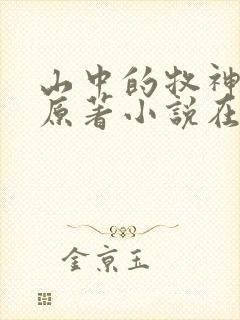 山中的牧神
原著小說在
金京玉